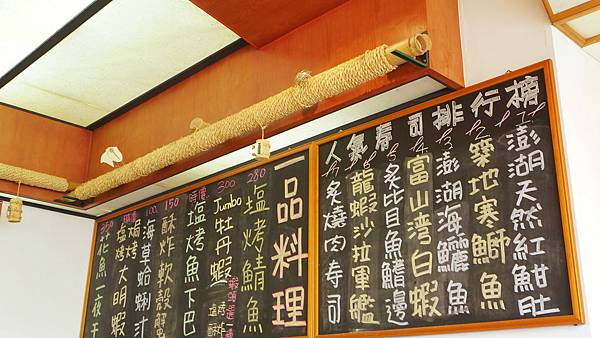 人氣壽司排行榜
澎湖天然紅魽肚
築地寒鰤魚
澎湖海鱺魚
富山湾白蝦
炙比目魚鰭邊
龍蝦沙拉軍艦
炙燒肉寿司
一品料理
280
塩烤鯖魚
300
Jumbo牡丹蝦
時價
塩烤魚下巴
150
酥炸軟殼蟹
100
海草蛤蜊汁
焗烤
塩烤大明蝦
花魚一夜干